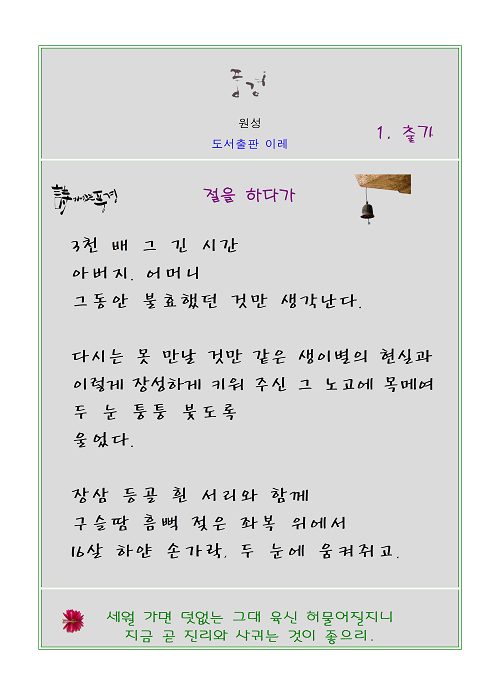 풍경
원성
도서출판 이레
1. 출가
詩가있는풍경
절을 하다가
3천 배 그 긴 시간
아버지. 어머니
그동안 불효했던 것만 생각난다.
다시는 못 만날 것만 같은 생이별의 현실과
이렇게 장성하게 키워 주신 그 노고에 목메여
두 눈 퉁퉁 붓도록
울었다.
장삼 등골 흰 서리와 함께
구슬땀 흠뻑 젖은 좌복 위에서
16살 하얀 손가락. 두 눈에 움켜쥐고.
세월 가면 덧없는 그대 육신 허물어질지니
지금 곧 진리와 사귀는 것이 좋으리.